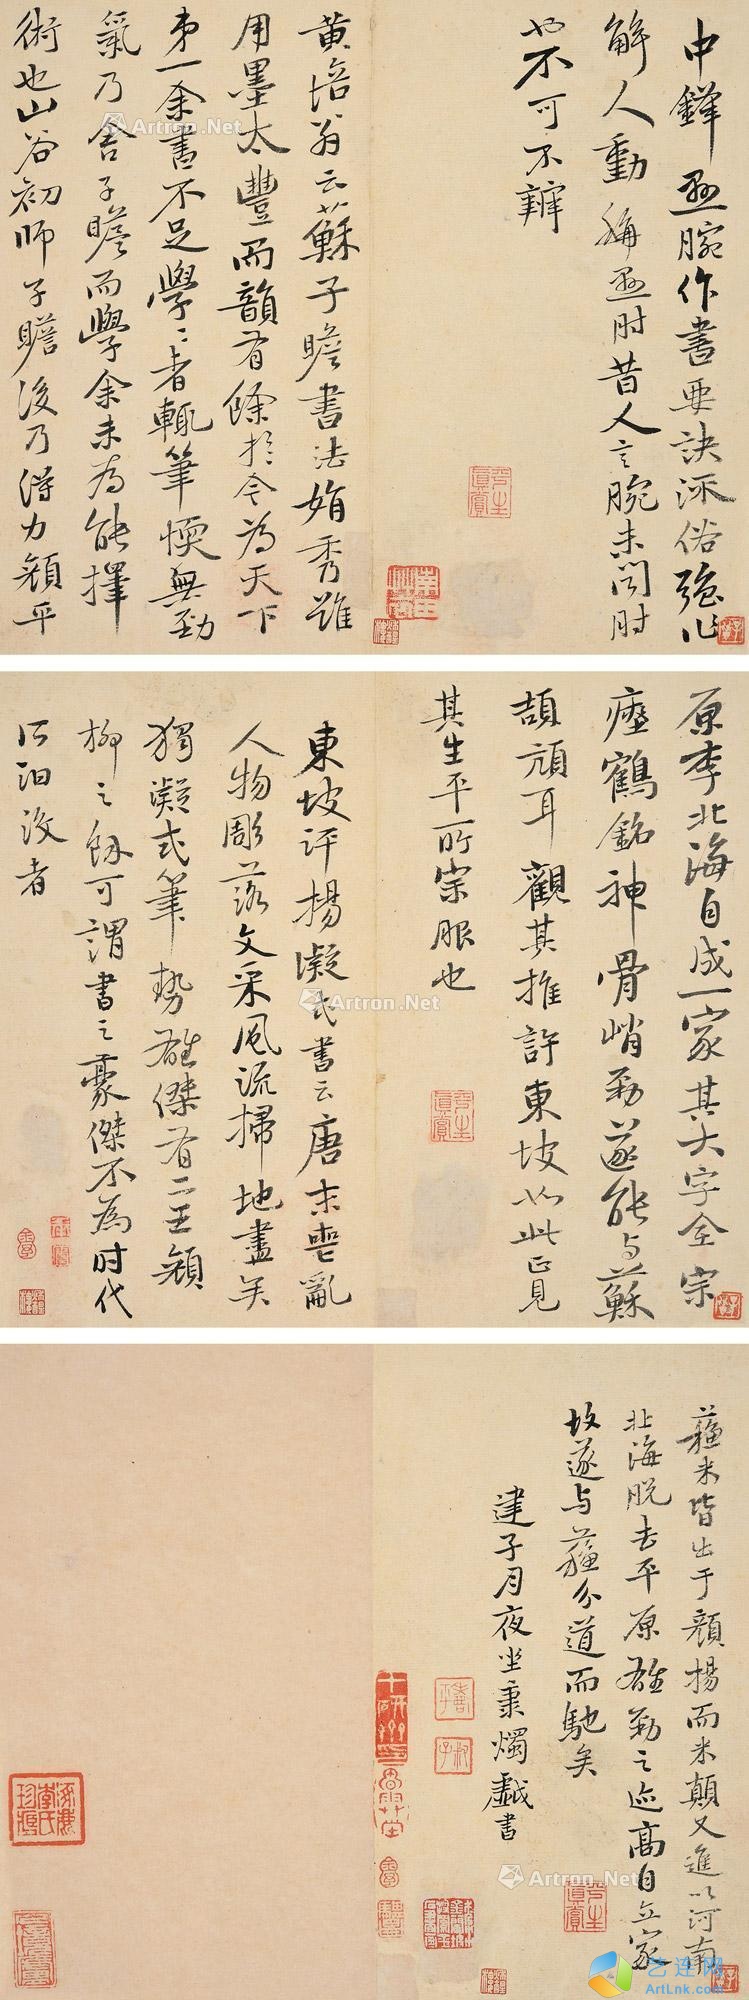 中鋒懸腕作書要訣深俗強作
解人動稱懸肘昔人言腕未聞肘
也不可不辨
黃涪翁云蘇子瞻書法娟秀雖
用墨太豐而韻有餘於今為天下
第一余書不足學學者輒筆愞無勁
氣乃舍子瞻而學余未為能擇
術也山谷初師子瞻後乃得力顏平
原李北海自成一家其大字全宗
瘞鶴銘神骨峭勁遂能與蘇
頡頏耳觀其推許東坡如此正見
其生平所宗服也
東坡評楊凝式書云唐末喪亂
人物彫落文采風流掃地盡矣
獨凝式筆勢雄傑有二王顏
柳之餘可謂書之豪傑不為時代
所汩沒者
蘇米皆出于顏楊而米顛又進以河南
北海脫去平原雄勁之跡高自立家
故遂與蘇分道而馳矣
建子月夜坐秉燭戲書
Artron.Net
Artron.Net
Artron.Net
Artron.Net
Artron.Net
Artron.Net
艺连网
ArtLnk.com